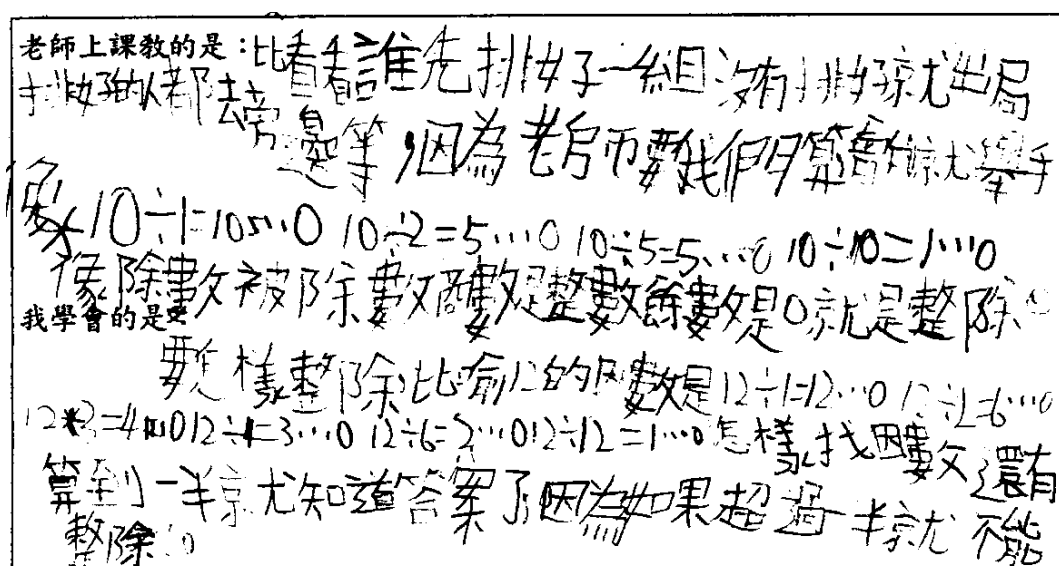 老師上課教的是：比看看誰先排好子一組沒有排好就出局
排好的人都去旁邊等，因為老師要我們算會的就舉手
像10÷1=10…0 10÷2=5…0 10÷5=5…0 10÷10=1…0
像除數被除數商數是整數餘數是0就是整除。
我學會的是：
要怎樣整除，比俞12的因數是12÷1=12…0 12÷2=6…0
12÷3=4…0 12÷4=3…0 12÷6=2…0 12÷12=1…0 怎樣找因數還有
算到一半就知道答案了因為如果超過一半就不能
整除。